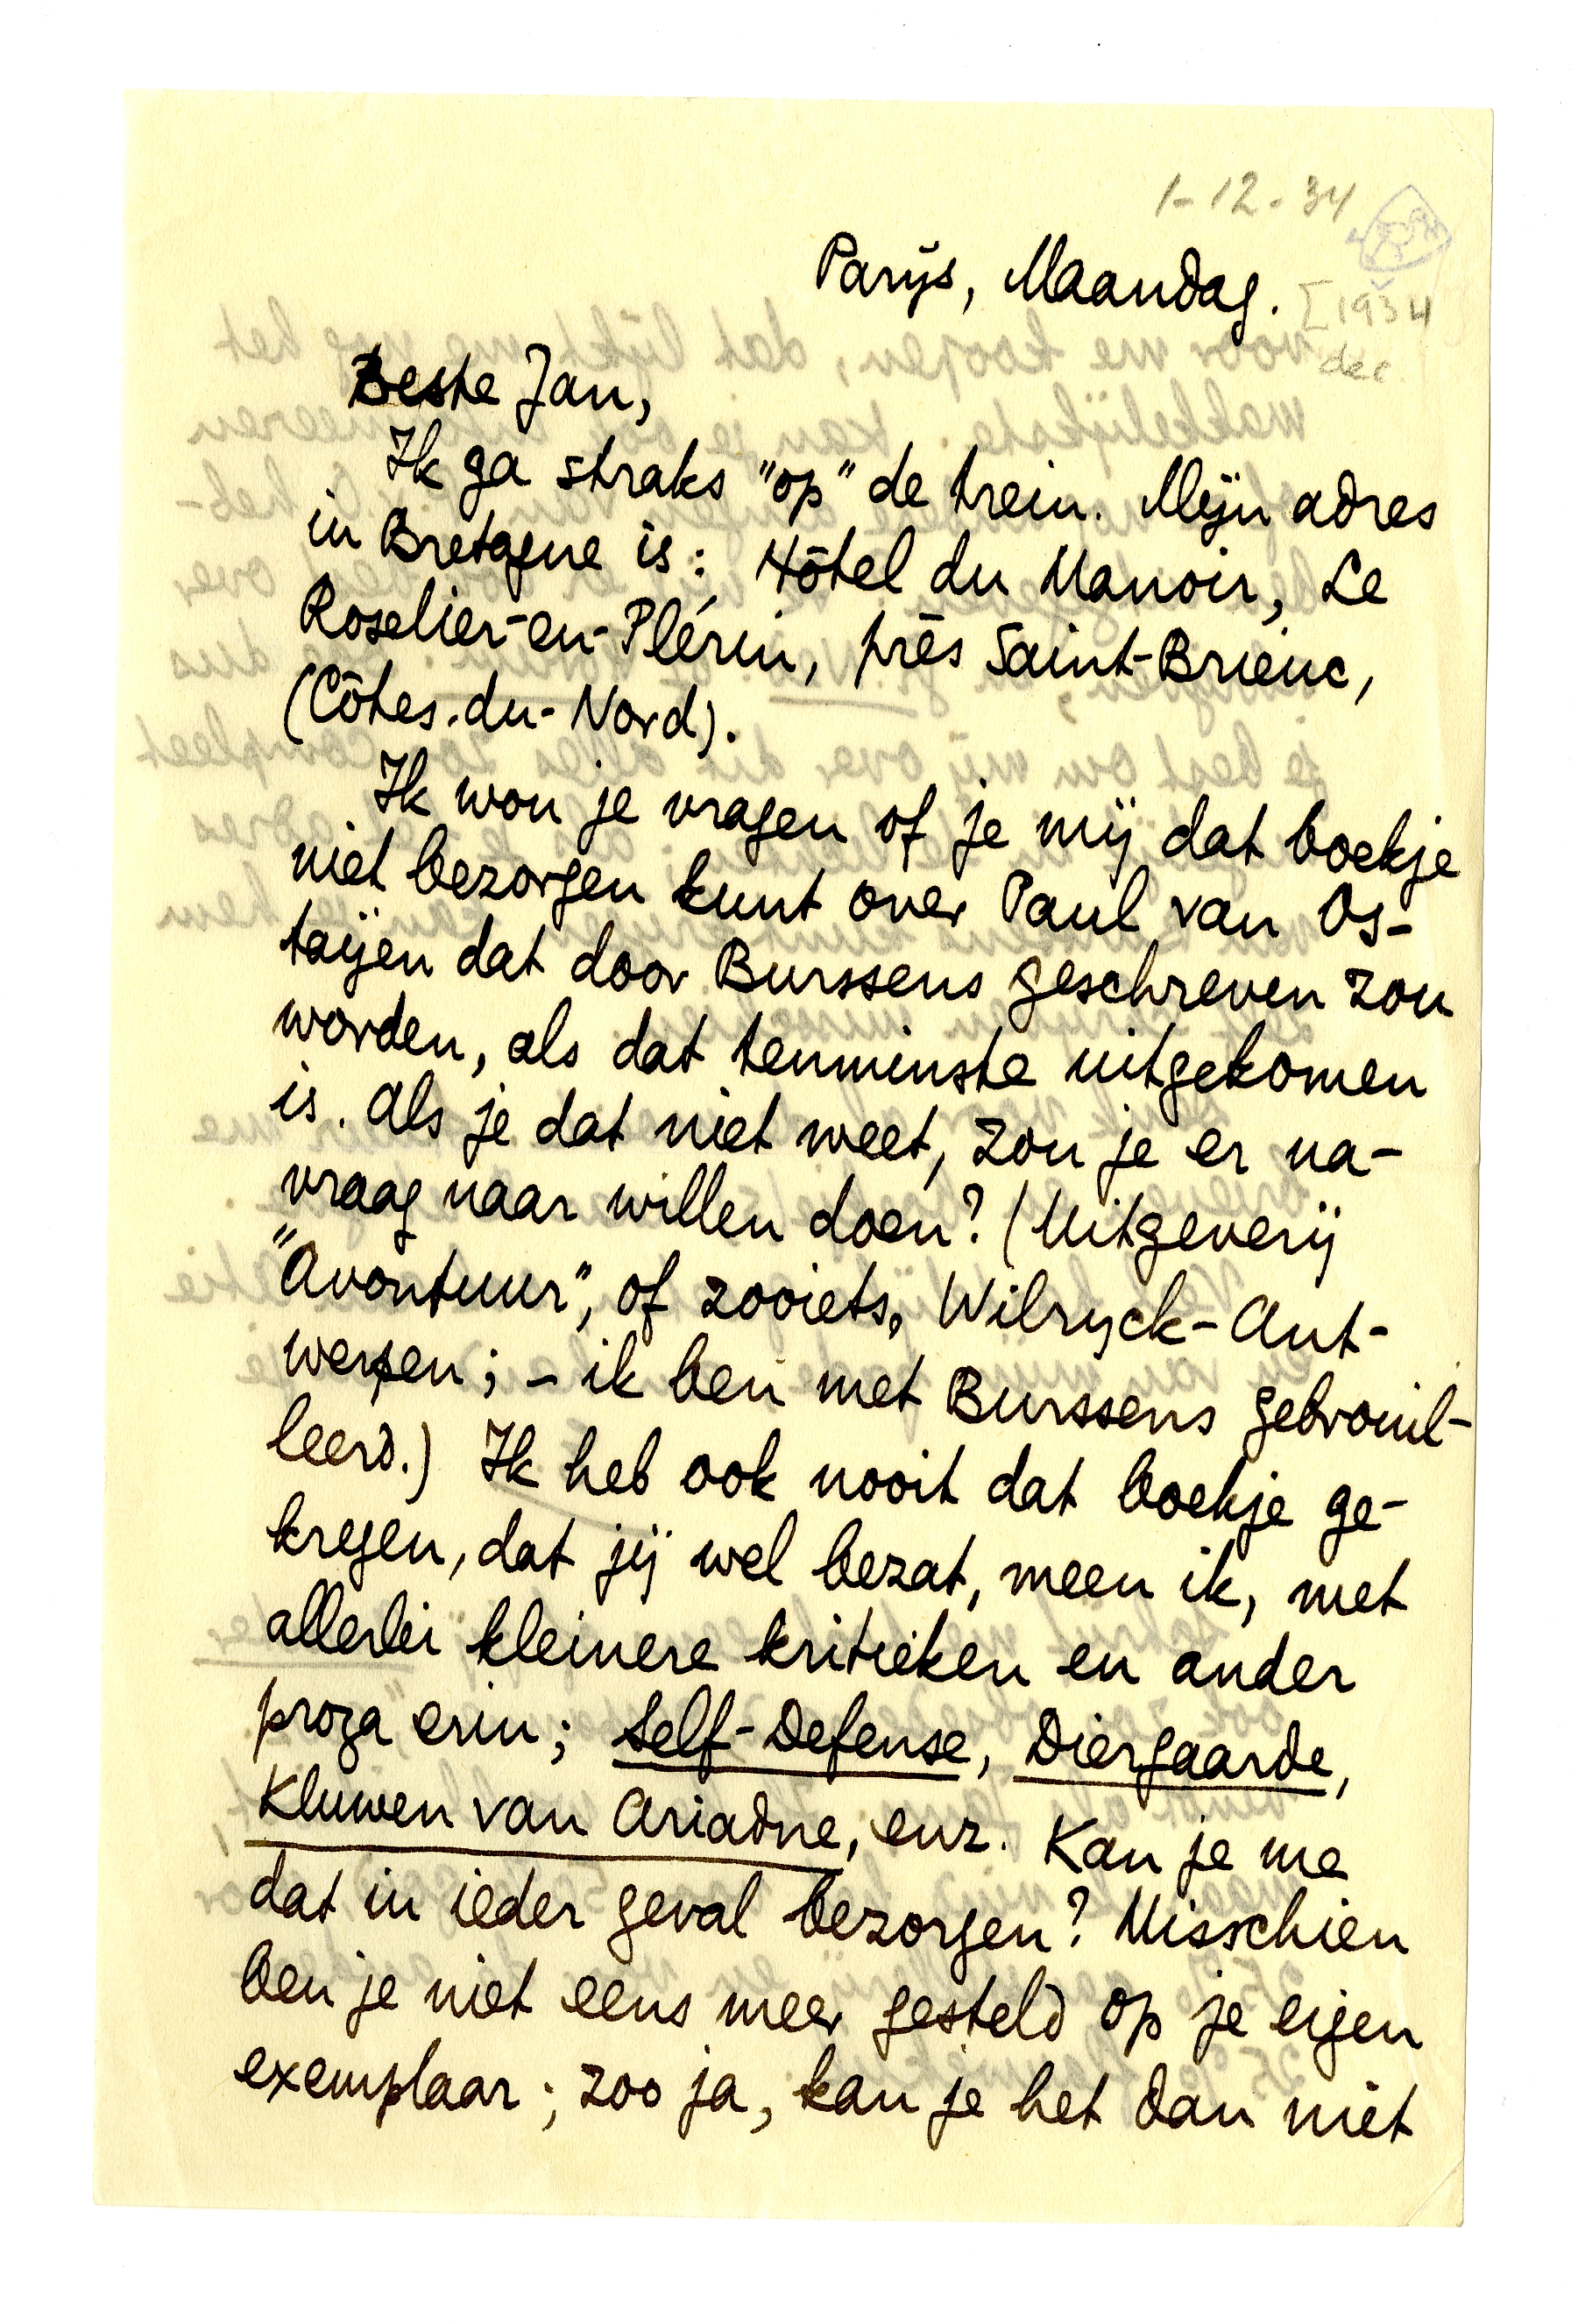 1-12-34
Parijs, Maandag.
[1934
dec.
Beste Jan,
Ik ga straks "op" de trein. Mijn adres
in Bretagne is: Hôtel du Manoir, Le
Roselier-en-Plérin, près Saint-Brieuc,
(Côtes-du-Nord).
Ik wou je vragen of je mij dat boekje
niet bezorgen kunt over Paul van Os-
taijen dat door Burssens geschreven zou
worden, als dat tenminste uitgekomen
is. Als je dat niet weet, zou je er na-
vraag naar willen doen? (Uitgeverij
"Avontuur", of zooiets, Wilryck-Ant-
werpen; – ik ben met Burssens gebrouil-
leerd.) Ik heb ook nooit dat boekje ge-
kregen, dat jij wel bezat, meen ik, met
allerlei kleinere kritieken en ander
proza erin; Self-Defense, Diergaarde,
Kluwen van Ariadne, enz. Kan je me
dat in ieder geval bezorgen? Misschien
ben je niet eens meer gesteld op je eigen
exemplaar; zoo ja, kan je het dan niet